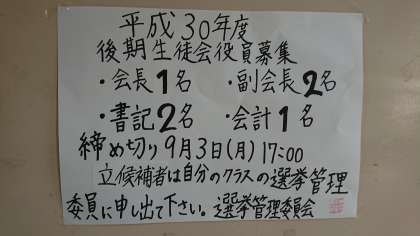 平成30年度
後期生徒会役員募集
・会長1名 ・副会長2名
・書記2名 ・会計1名
締め切り9月3日(月)17:00
立候補者は自分のクラスの選挙管理
委員に申し出て下さい。選挙管理委員会